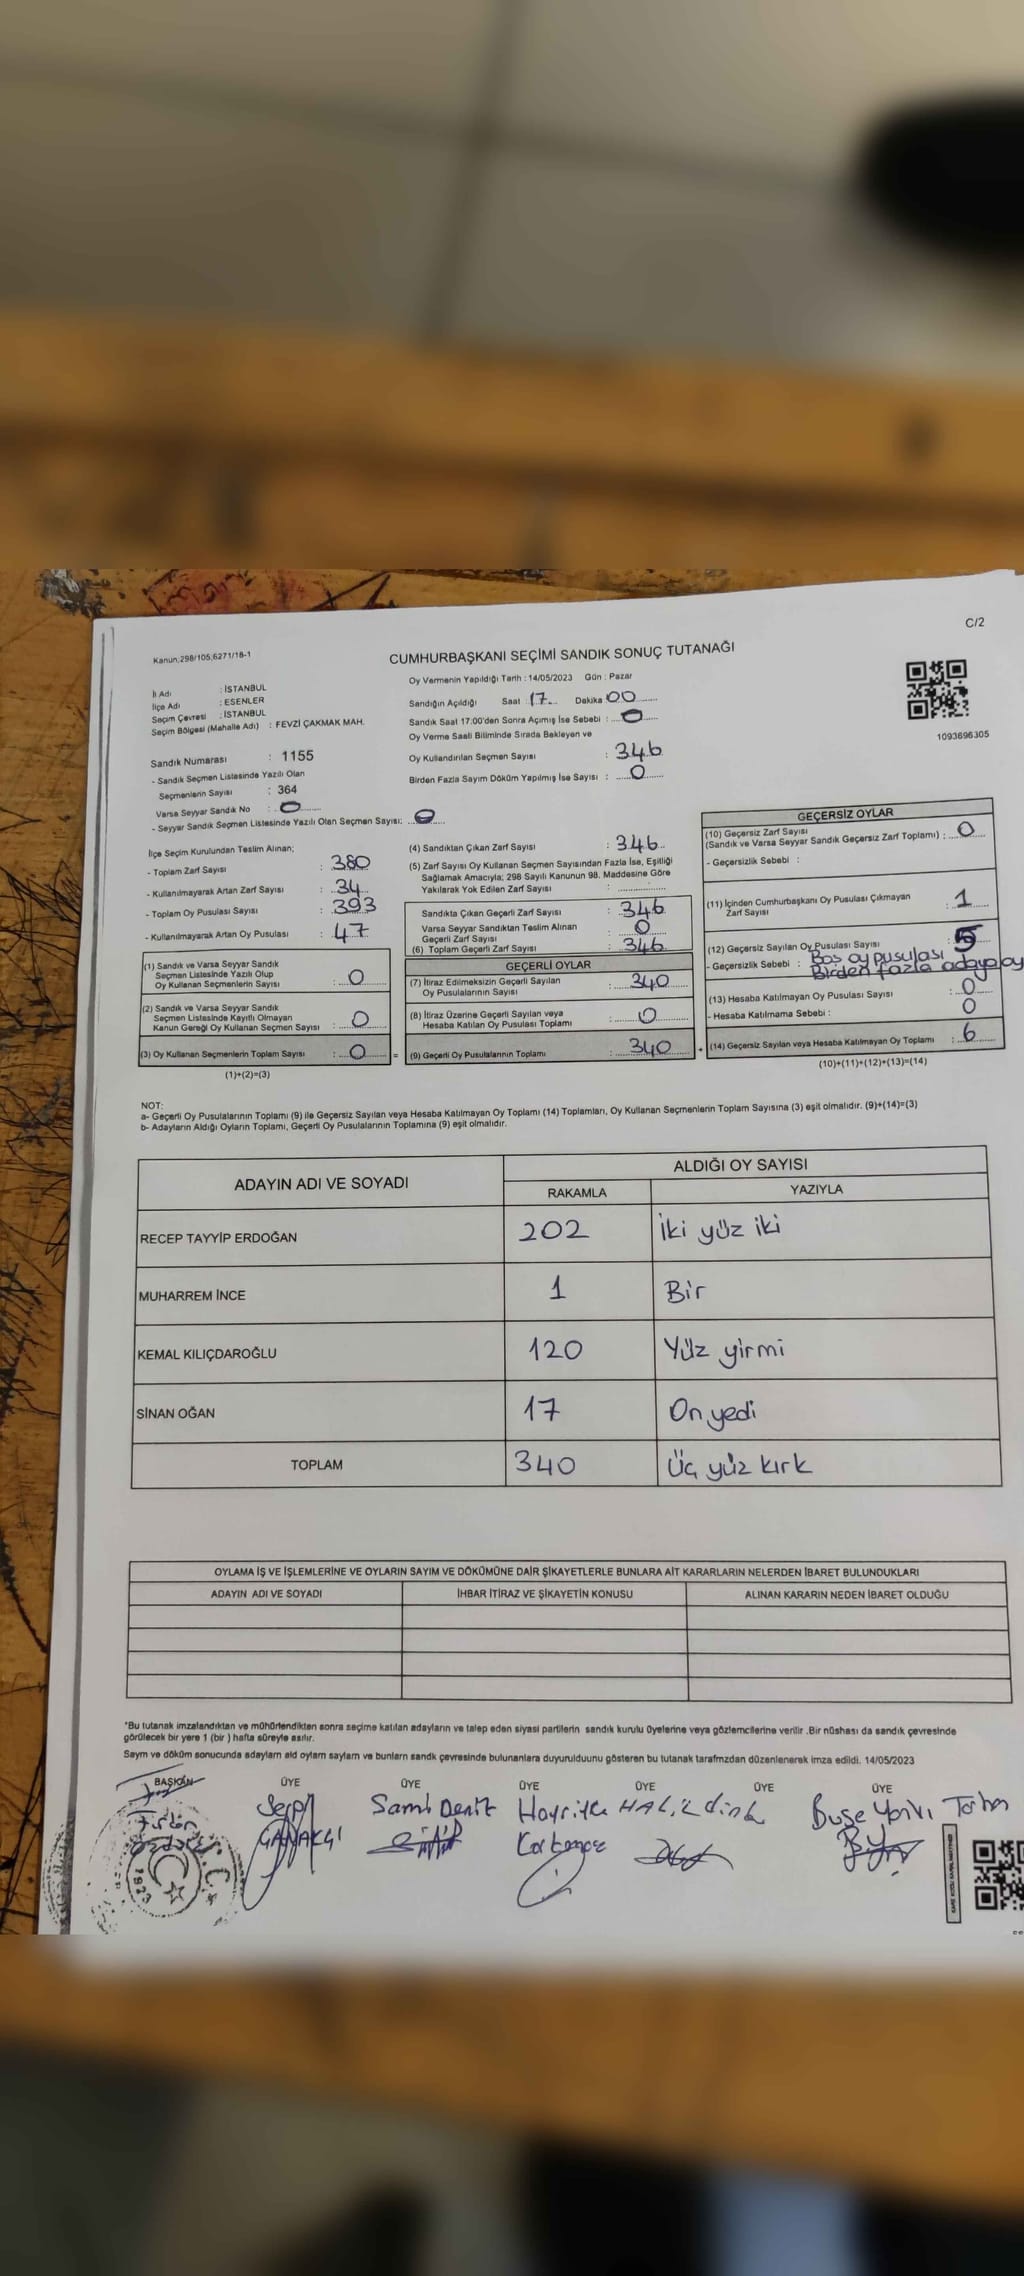 C/2
Kanun;298/105;6271/18-1
CUMHURBAŞKANI SEÇİMİ SANDIK SONUÇ TUTANAĞI
1093696305
İl Adı : İSTANBUL
İlçe Adı : ESENLER
Seçim Çevresi : İSTANBUL
Seçim Bölgesi (Mahalle Adı) : FEVZİ ÇAKMAK MAH.
Sandık Numarası : 1155
- Sandık Seçmen Listesinde Yazılı Olan
Seçmenlerin Sayısı : 364
Varsa Seyyar Sandık No : 0
- Seyyar Sandık Seçmen Listesinde Yazılı Olan Seçmen Sayısı: 0
Oy Vermenin Yapıldığı Tarih : 14/05/2023 Gün : Pazar
Sandığın Açıldığı Saat 17 Dakika 00
Sandık Saat 17:00'den Sonra Açımış İse Sebebi : 0
Oy Verme Saati Bitiminde Sırada Bekleyen ve
Oy Kullandırılan Seçmen Sayısı : 346
Birden Fazla Sayım Döküm Yapılmış İse Sayısı : 0
İlçe Seçim Kurulundan Teslim Alınan;
- Toplam Zarf Sayısı : 380
- Kullanılmayarak Artan Zarf Sayısı : 34
- Toplam Oy Pusulası Sayısı : 393
- Kullanılmayarak Artan Oy Pusulası : 47
(1) Sandık ve Varsa Seyyar Sandık
Seçmen Listesinde Yazılı Olup
Oy Kullanan Seçmenlerin Sayısı : 0
(2) Sandık ve Varsa Seyyar Sandık
Seçmen Listesinde Kayıtlı Olmayan
Kanun Gereği Oy Kullanan Seçmen Sayısı : 0
(3) Oy Kullanan Seçmenlerin Toplam Sayısı : 0
(1)+(2)=(3)
(4) Sandıktan Çıkan Zarf Sayısı : 346
(5) Zarf Sayısı Oy Kullanan Seçmen Sayısından Fazla İse, Eşitliği
Sağlamak Amacıyla; 298 Sayılı Kanunun 98. Maddesine Göre
Yakılarak Yok Edilen Zarf Sayısı :
Sandıkta Çıkan Geçerli Zarf Sayısı : 346
Varsa Seyyar Sandıktan Teslim Alınan
Geçerli Zarf Sayısı : 0
(6) Toplam Geçerli Zarf Sayısı : 346
GEÇERLİ OYLAR
(7) İtiraz Edilmeksizin Geçerli Sayılan
Oy Pusulalarının Sayısı : 340
(8) İtiraz Üzerine Geçerli Sayılan veya
Hesaba Katılan Oy Pusulası Toplamı : 0
= (9) Geçerli Oy Pusulalarının Toplamı : 340
GEÇERSİZ OYLAR
(10) Geçersiz Zarf Sayısı
(Sandık ve Varsa Seyyar Sandık Geçersiz Zarf Toplamı) : 0
- Geçersizlik Sebebi :
(11) İçinden Cumhurbaşkanı Oy Pusulası Çıkmayan
Zarf Sayısı : 1
(12) Geçersiz Sayılan Oy Pusulası Sayısı : 5
- Geçersizlik Sebebi : Boş oy pusulası
Birden fazla adaya oy
(13) Hesaba Katılmayan Oy Pusulası Sayısı : 0
- Hesaba Katılmama Sebebi : 0
+ (14) Geçersiz Sayılan veya Hesaba Katılmayan Oy Toplamı : 6
(10)+(11)+(12)+(13)=(14)
NOT:
a- Geçerli Oy Pusulalarının Toplamı (9) ile Geçersiz Sayılan veya Hesaba Katılmayan Oy Toplamı (14) Toplamları, Oy Kullanan Seçmenlerin Toplam Sayısına (3) eşit olmalıdır. (9)+(14)=(3)
b- Adayların Aldığı Oyların Toplamı, Geçerli Oy Pusulalarının Toplamına (9) eşit olmalıdır.
ADAYIN ADI VE SOYADI ALDIĞI OY SAYISI
RAKAMLA YAZIYLA
RECEP TAYYİP ERDOĞAN 202 İki yüz iki
MUHARREM İNCE 1 Bir
KEMAL KILIÇDAROĞLU 120 Yüz yirmi
SİNAN OĞAN 17 On yedi
TOPLAM 340 Üç yüz kırk
OYLAMA İŞ VE İŞLEMLERİNE VE OYLARIN SAYIM VE DÖKÜMÜNE DAİR ŞİKAYETLERLE BUNLARA AİT KARARLARIN NELERDEN İBARET BULUNDUKLARI
ADAYIN ADI VE SOYADI İHBAR İTİRAZ VE ŞİKAYETİN KONUSU ALINAN KARARIN NEDEN İBARET OLDUĞU
*Bu tutanak imzalandıktan ve mühürlendikten sonra seçime katılan adayların ve talep eden siyasi partilerin sandık kurulu üyelerine veya gözlemcilerine verilir .Bir nüshası da sandık çevresinde
görülecek bir yere 1 (bir ) hafta süreyle asılır.
Sayım ve döküm sonucunda adayların aldı oyların sayların ve bunların sandk çevresinde bulunanlara duyurulduunu gösteren bu tutanak tarafmzdan düzenlenerek imza edildi. 14/05/2023
BAŞKAN ÜYE ÜYE ÜYE ÜYE ÜYE ÜYE
Sami Deniz Hayriye HALİL Buse
T.C.
1923